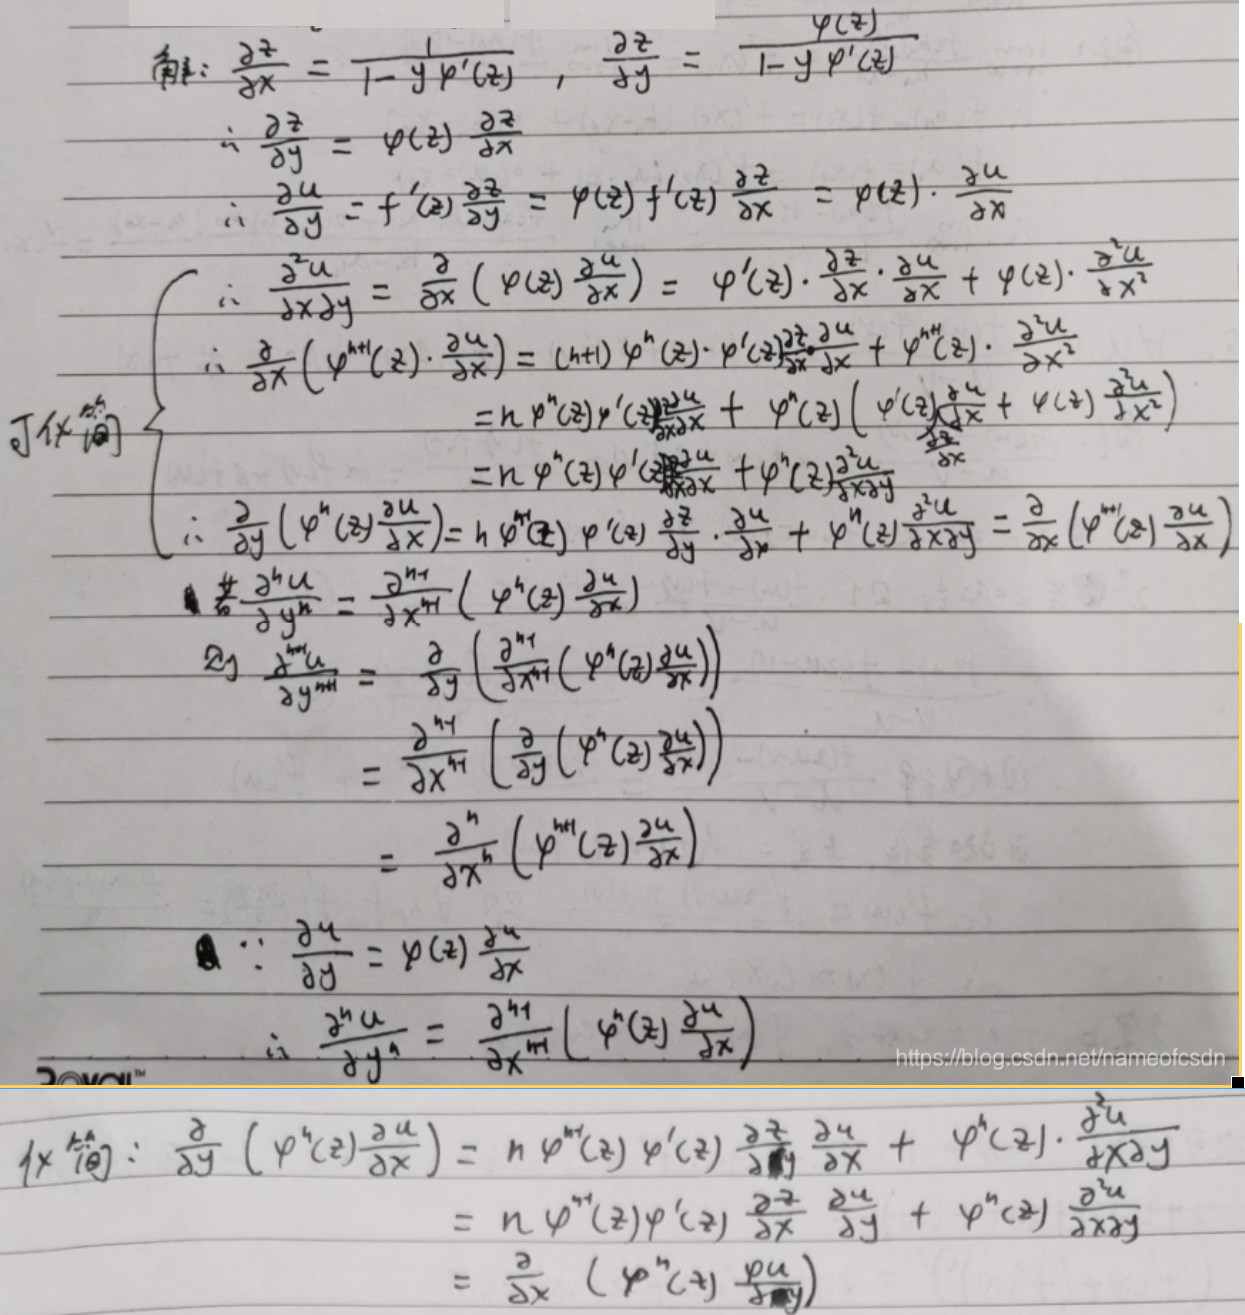 解: ∂z/∂x = 1/(1-yφ'(z)) , ∂z/∂y = φ(z)/(1-yφ'(z))
∴ ∂z/∂y = φ(z) ∂z/∂x
∴ ∂u/∂y = f'(z) ∂z/∂y = φ(z) f'(z) ∂z/∂x = φ(z)·∂u/∂x
∴ ∂²u/∂x∂y = ∂/∂x (φ(z) ∂u/∂x) = φ'(z)·∂z/∂x·∂u/∂x + φ(z)·∂²u/∂x²
∴ ∂/∂x (φⁿ⁺¹(z)·∂u/∂x) = (n+1) φⁿ(z)·φ'(z) ∂z/∂x·∂u/∂x + φⁿ⁺¹(z)·∂²u/∂x²
可化简
= n φⁿ(z) φ'(z) ∂z/∂x ∂u/∂x + φⁿ(z) (φ'(z) ∂z/∂x ∂u/∂x + φ(z) ∂²u/∂x²)
= n φⁿ(z) φ'(z) ∂z/∂x ∂u/∂x + φⁿ(z) ∂²u/∂x∂y
∴ ∂/∂y (φⁿ(z) ∂u/∂x) = n φⁿ⁻¹(z) φ'(z) ∂z/∂y·∂u/∂x + φⁿ(z) ∂²u/∂x∂y = ∂/∂x (φⁿ⁺¹(z) ∂u/∂x)
若 ∂ⁿu/∂yⁿ = ∂ⁿ⁻¹/∂xⁿ⁻¹ (φⁿ(z) ∂u/∂x)
则 ∂ⁿ⁺¹u/∂yⁿ⁺¹ = ∂/∂y (∂ⁿ⁻¹/∂xⁿ⁻¹ (φⁿ(z) ∂u/∂x))
= ∂ⁿ⁻¹/∂xⁿ⁻¹ (∂/∂y (φⁿ(z) ∂u/∂x))
= ∂ⁿ/∂xⁿ (φⁿ⁺¹(z) ∂u/∂x)
∵ ∂u/∂y = φ(z) ∂u/∂x
∴ ∂ⁿu/∂yⁿ = ∂ⁿ⁻¹/∂xⁿ⁻¹ (φⁿ(z) ∂u/∂x)
https://blog.csdn.net/nameofcsdn
化简: ∂/∂y (φⁿ(z) ∂u/∂x) = n φⁿ⁻¹(z) φ'(z) ∂z/∂y ∂u/∂x + φⁿ(z)·∂²u/∂x∂y
= n φⁿ⁻¹(z) φ'(z) ∂z/∂x ∂u/∂y + φⁿ(z) ∂²u/∂x∂y
= ∂/∂x (φⁿ(z) ∂u/∂y)